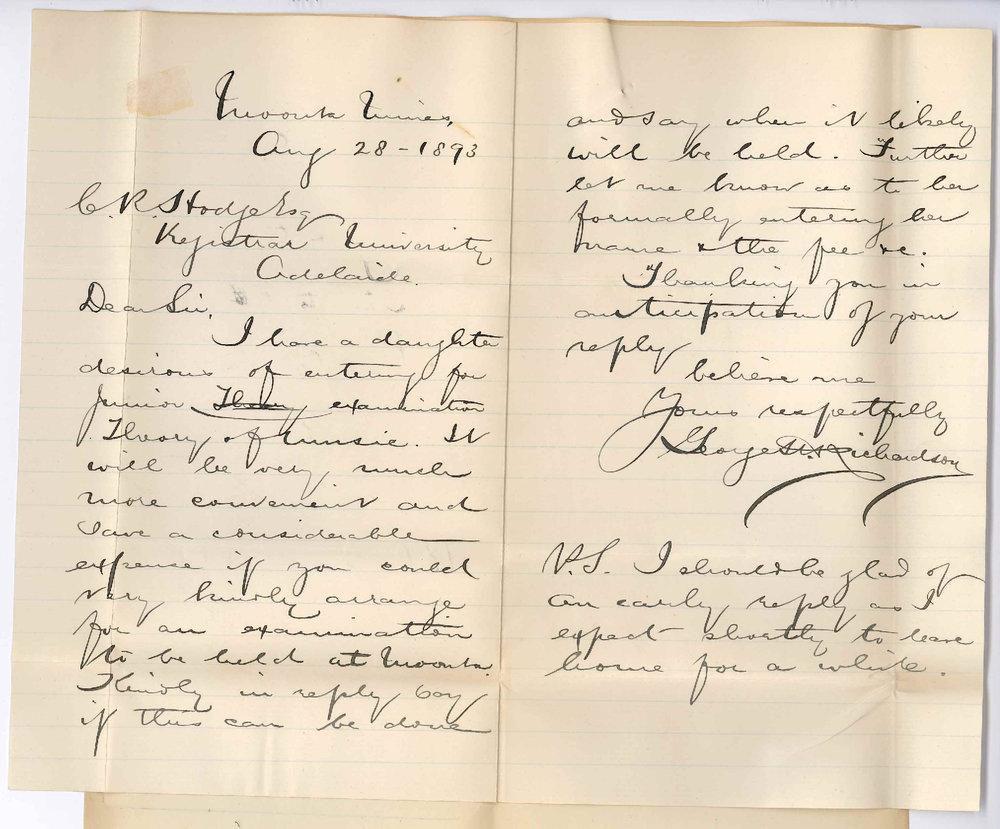 Moonta Mines,
Aug 28-1893
C. R. Hodge Esq
Registrar University
Adelaide.
Dear Sir,
I have a daughter
desirous of entering for
Junior Theory examination
Theory of music. It
will be very much
more convenient and
save a considerable
expense if you could
very kindly arrange
for an examination
to be held at Moonta.
Kindly in reply say
if this can be done
and say when it likely
will be held. Further
let me know as to her
formally entering her
name & the fee &c.
Thanking you in
anticipation of your
reply
believe me
Yours respectfully
George Richardson
P.S. I should be glad of
an early reply as I
expect shortly to leave
home for a while.